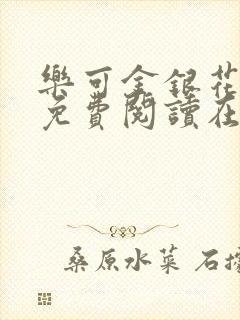 樂可金銀花
免費閱讀在
桑原水菜 石據